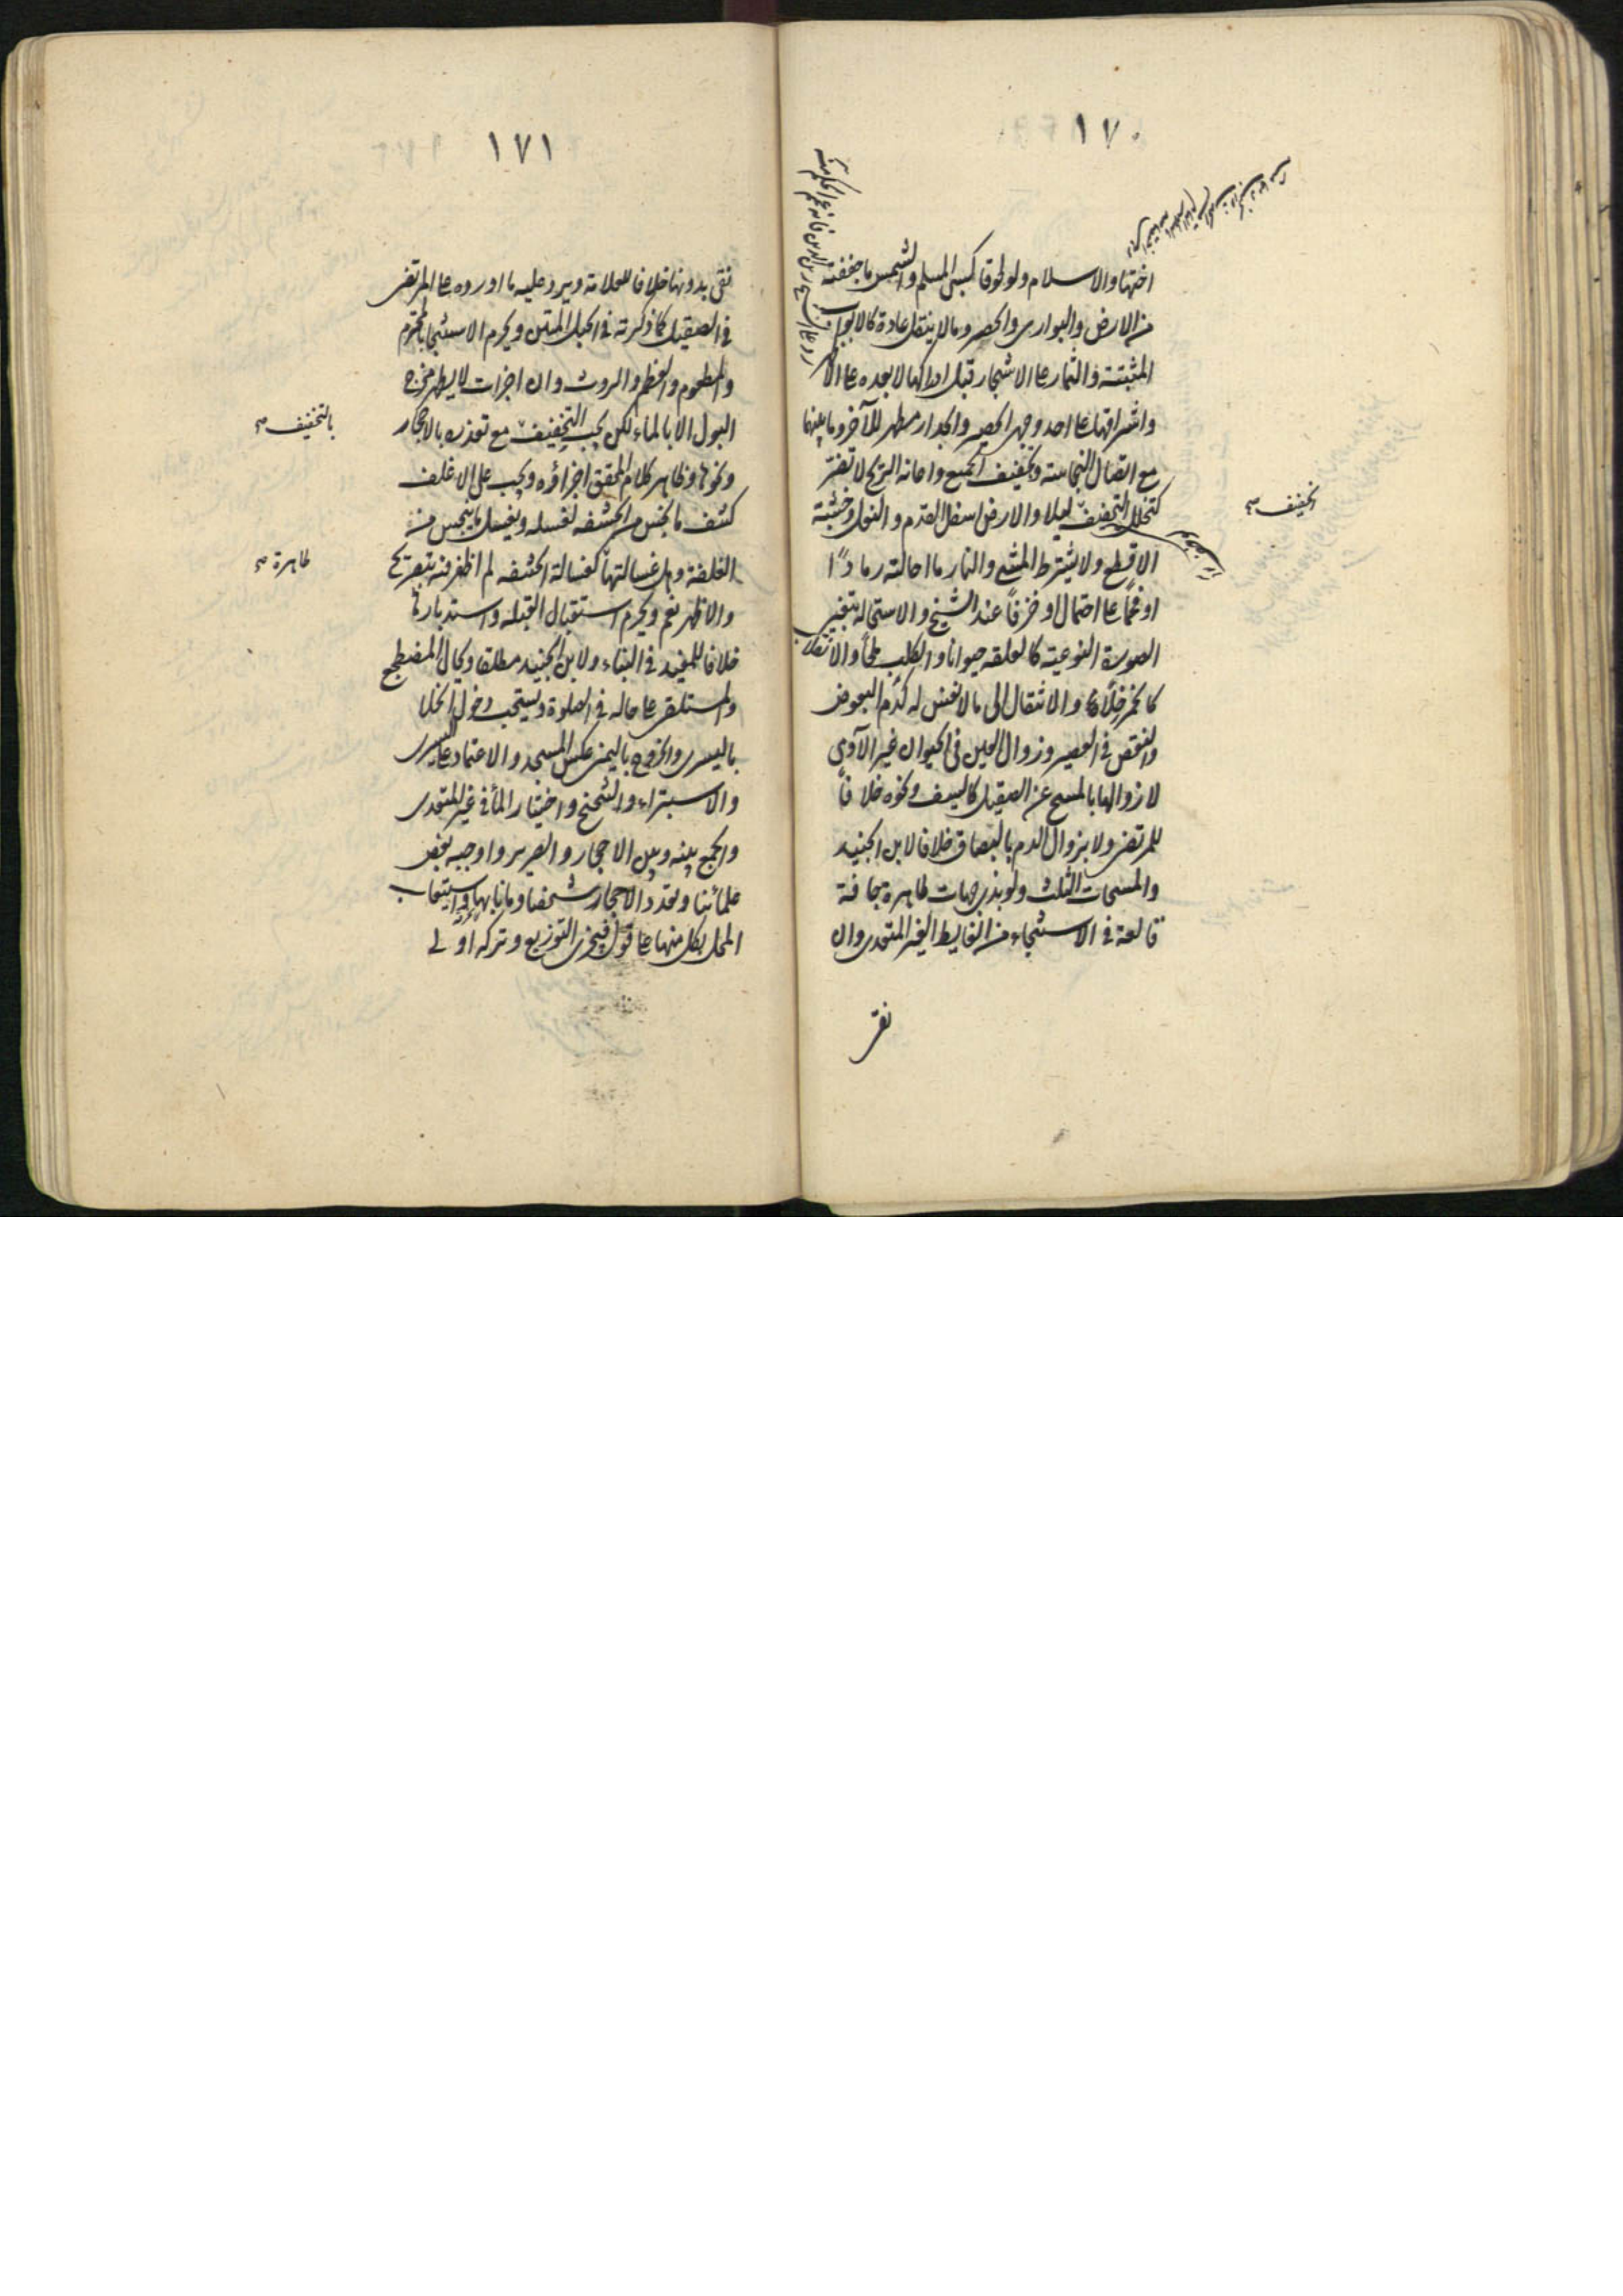 ١٧٠
اختها والاسلام ولو لحوقا كسبى المسلم والشمس ما جففته
من الارض والبوارى والحصر وما لا ينتقل عادة كالابواب
المثبتة والثمار على الاشجار قبل ادراكها لا بعده على الاظهر
واشراقها على احد وجهى الحصير والجدار مطهر للآخر وما بينهما
مع اتصال النجاسة وتجفيف الجميع واعانة الريح لا تضر
كتخلل التجفيف ليلا والارض اسفل القدم والنعل وخشبة
الاقطع ولا يشترط المشى والنار ما احالته رمادًا
او فحمًا على احتمال او خزفًا عند الشيخ والاستحالة بتغيير
الصورة النوعية كالعلقة حيوانا والكلب ملحًا والانقلاب
كالخمر خلًا والانتقال الى ما لا نفس له كدم البعوض
والنقص فى العصير وزوال العين فى الحيوان غير الآدمى
لا زوالها بالمسح عن الصقيل كالسيف ونحوه خلافًا
للمرتضى ولا بزوال الدم بالبصاق خلافا لابن الجنيد
والمسحات الثلث ولو بذى جهات طاهرة جافة
قالعة فى الاستنجاء من الغايط الغير المتعدى وان
تجفيف
نقى
١٧١
نقى بدونها خلافا للعلامة ويرد عليه ما اورده على المرتضى
فى الصقيل كما ذكرته فى الحبل المتين ويحرم الاستنجا بالمحترم
والمطعوم والعظم والروث وان اجزات لا يطهر مخرج
البول الا بالماء لكن يجب التخفيف مع تعذره بالاحجار
ونحوها وظاهر كلام المحقق اجزاؤه ويجب على الاغلف
كشف ما يحبس من الحشفه لغسله ويغسل ما ينجس من
الغلفة وهل غسالتها كغسالة الحشفه لم اظفر فيه بتصريح
والاظهر نعم ويحرم استقبال القبلة واستدبارها
خلافا للمفيد فى البناء ولابن الجنيد مطلقا وحال المضطجع
والمستلقى على حاله فى الصلوة ويستحب دخول الخلا
باليسرى والخروج باليمنى عكس المسجد والاعتماد على اليسرى
والاستبراء والتنحنح واختيار الماء فى غير المتعدى
والجمع بينه وبين الاحجار والصرير واوجبه بعض
علمائنا وتعدد الاحجار شخصا وما نابها واستيعاب
المحل بكل منها على قول فيجزى التوزيع وتركه اولى
بالتخفيف
طاهرة